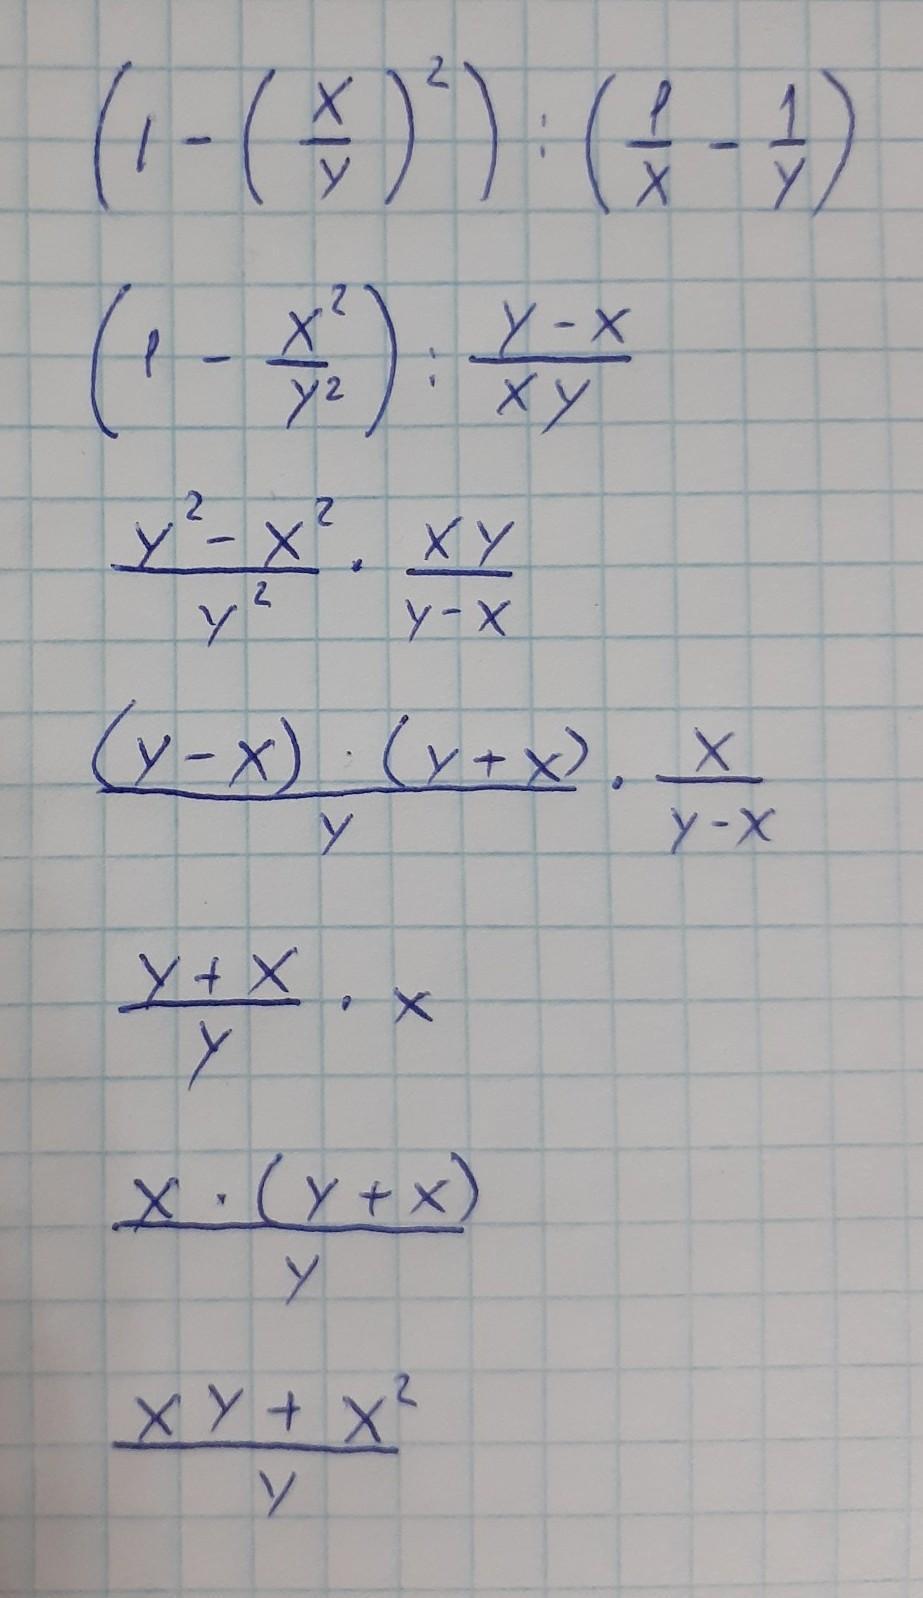 (1 - (x/y)²) : (1/x - 1/y)
(1 - x²/y²) : (y - x)/(xy)
(y² - x²)/y² · (xy)/(y - x)
((y - x) · (y + x))/y · x/(y - x)
(y + x)/y · x
(x · (y + x))/y
(xy + x²)/y